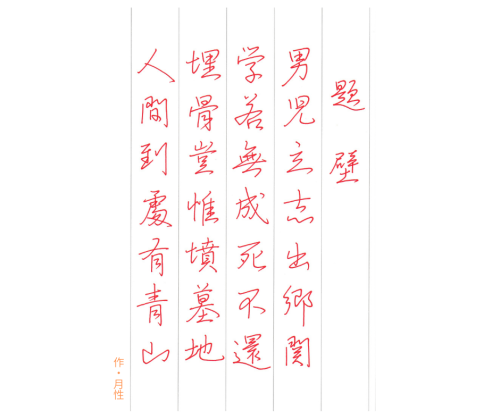 題壁
男児立志出郷関
学若無成死不還
埋骨豈惟墳墓地
人間到處有青山
作・月性